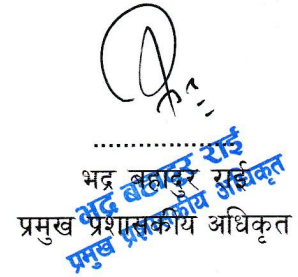 ..................
भद्र बहादुर राई
प्रमुख प्रशासकीय अधिकृत
भद्र बहादुर राई
प्रमुख प्रशासकीय अधिकृत